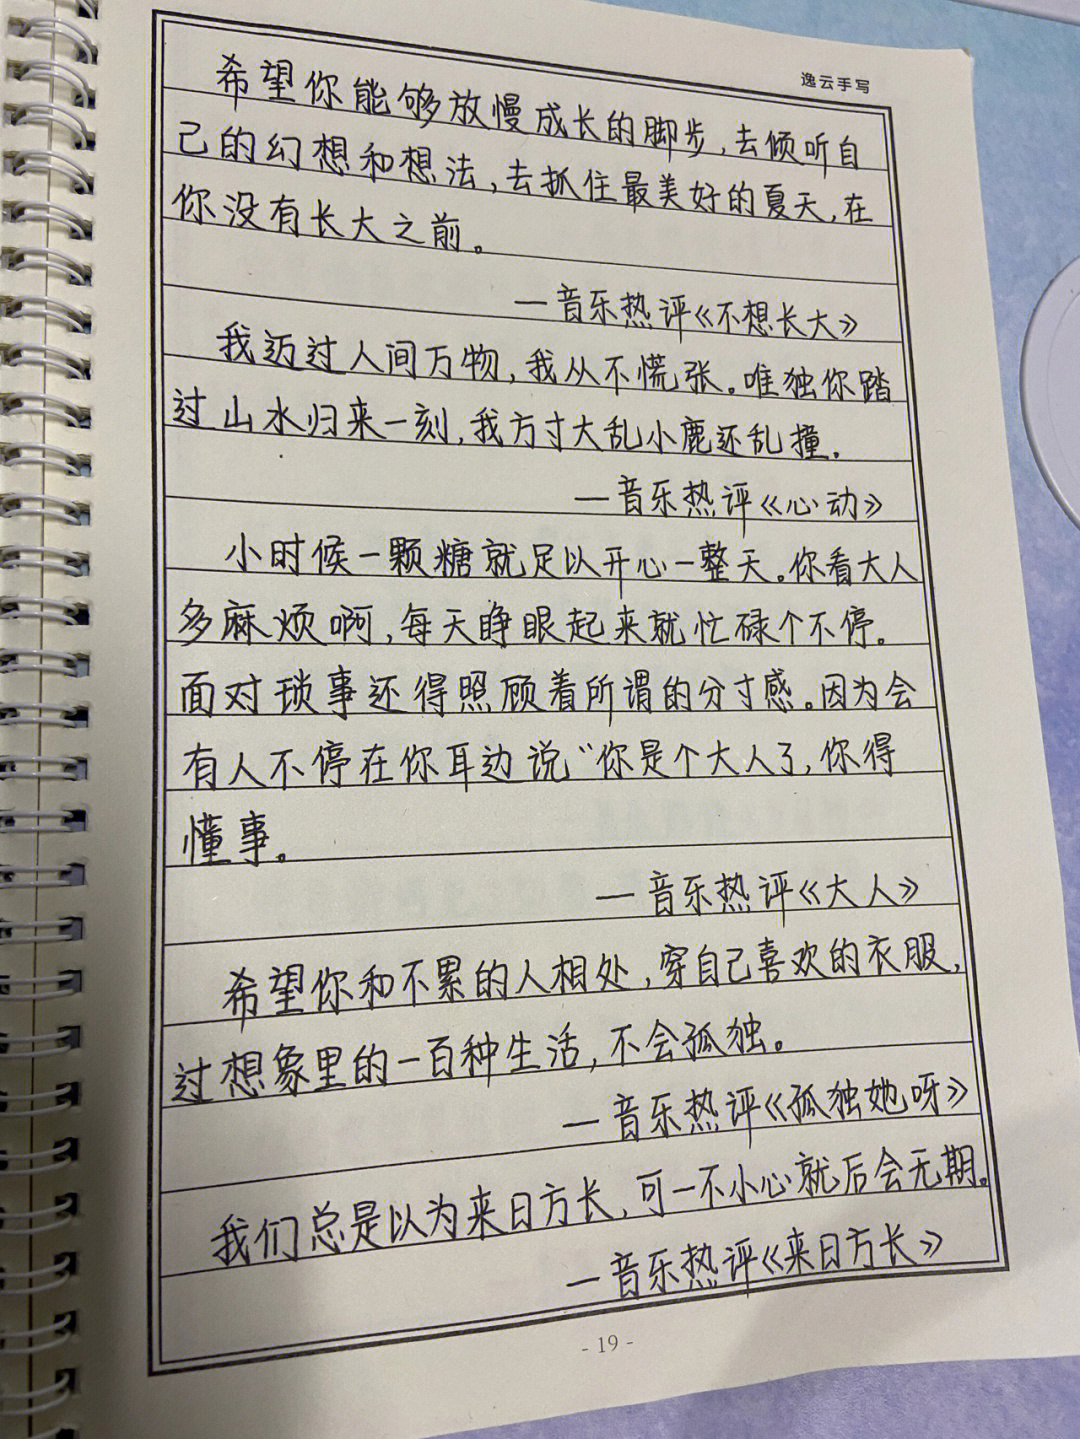 逸云手写
希望你能够放慢成长的脚步,去倾听自
己的幻想和想法,去抓住最美好的夏天,在
你没有长大之前。
—音乐热评《不想长大》
我迈过人间万物,我从不慌张。唯独你踏
过山水归来一刻,我方寸大乱小鹿还乱撞.
—音乐热评《心动》
小时候一颗糖就足以开心一整天。你看大人
多麻烦啊,每天睁眼起来就忙碌个不停。
面对琐事还得照顾着所谓的分寸感。因为会
有人不停在你耳边说“你是个大人了,你得
懂事。
—音乐热评《大人》
希望你和不累的人相处,穿自己喜欢的衣服,
过想象里的一百种生活,不会孤独。
—音乐热评《孤独她呀》
我们总是以为来日方长,可一不小心就后会无期。
—音乐热评《来日方长》
- 19 -